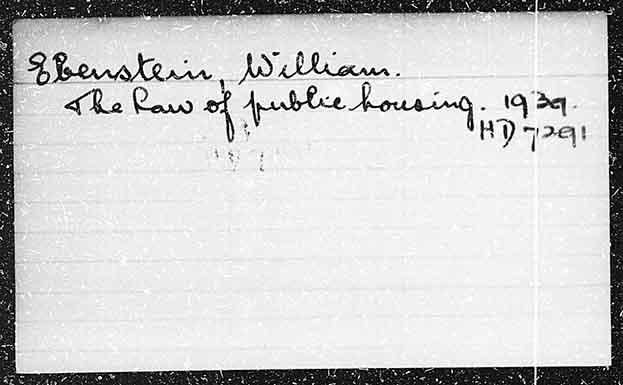 Ebenstein, William.
The Law of public housing. 1939.
HD 7291